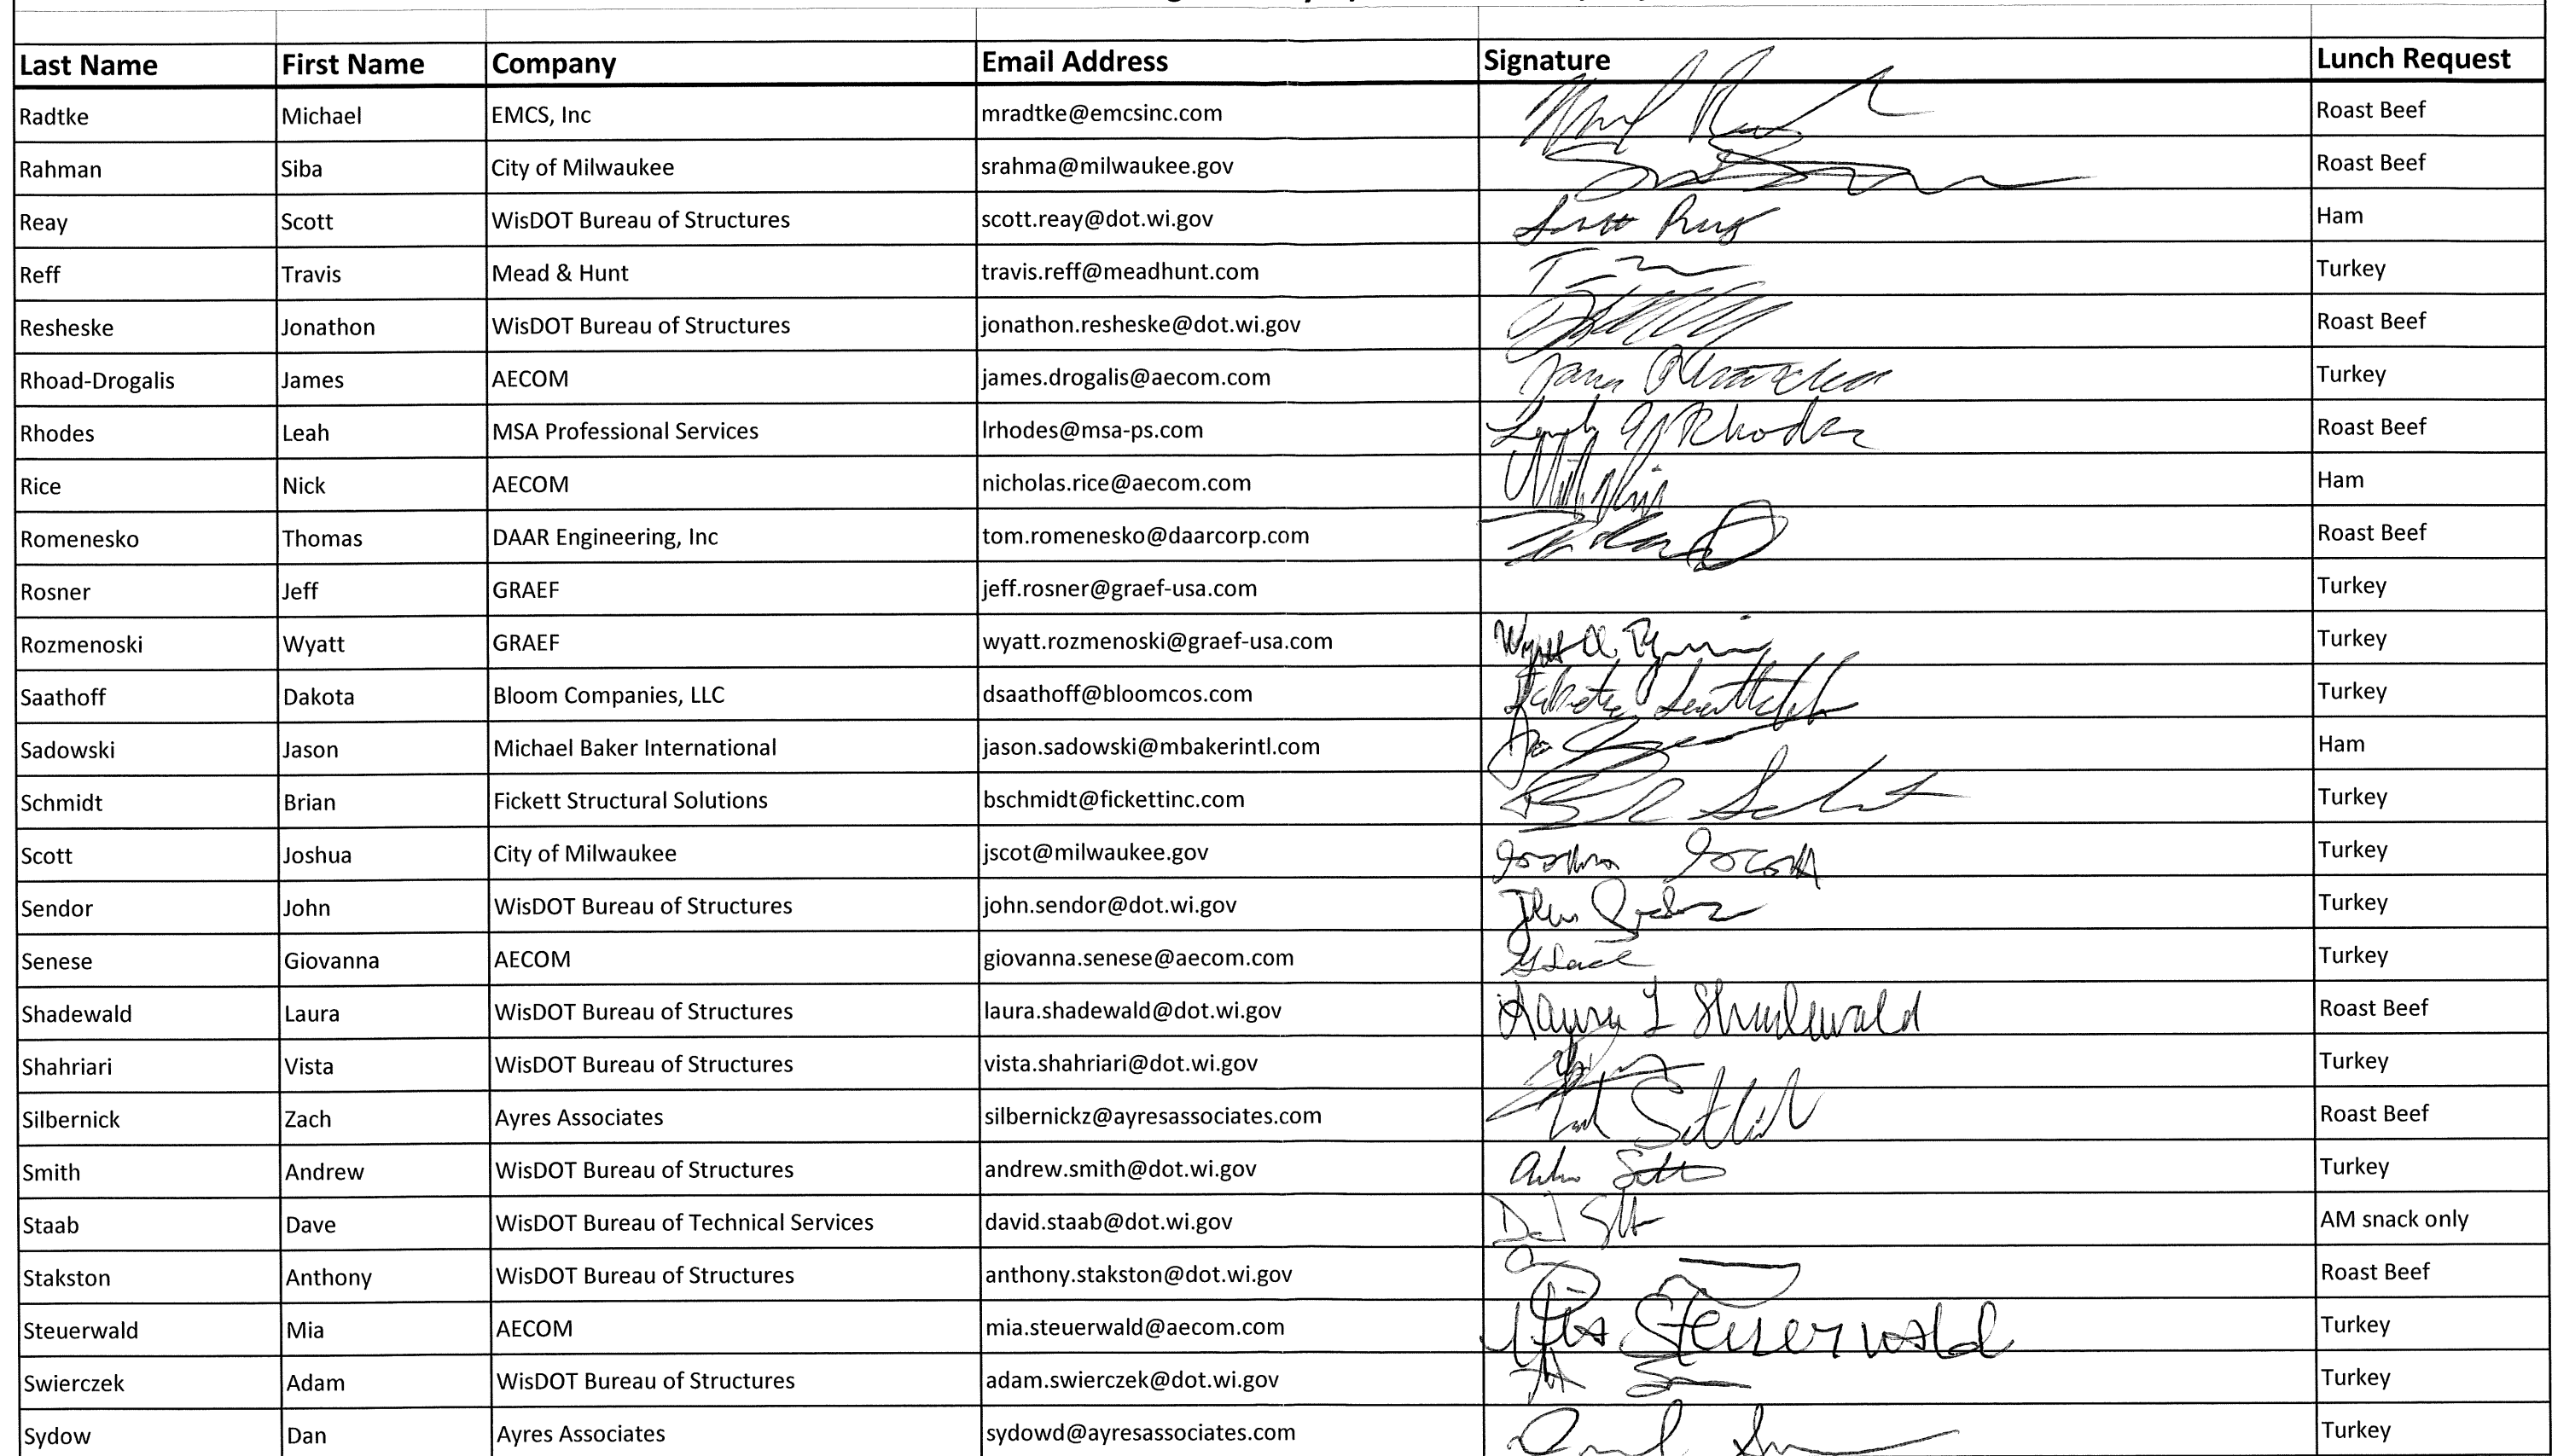 Last Name First Name Company Email Address Signature Lunch Request
Radtke Michael EMCS, Inc mradtke@emcsinc.com Roast Beef
Rahman Siba City of Milwaukee srahma@milwaukee.gov Roast Beef
Reay Scott WisDOT Bureau of Structures scott.reay@dot.wi.gov Ham
Reff Travis Mead & Hunt travis.reff@meadhunt.com Turkey
Resheske Jonathon WisDOT Bureau of Structures jonathon.resheske@dot.wi.gov Roast Beef
Rhoad-Drogalis James AECOM james.drogalis@aecom.com Turkey
Rhodes Leah MSA Professional Services lrhodes@msa-ps.com Rhodes Roast Beef
Rice Nick AECOM nicholas.rice@aecom.com Ham
Romenesko Thomas DAAR Engineering, Inc tom.romenesko@daarcorp.com Roast Beef
Rosner Jeff GRAEF jeff.rosner@graef-usa.com Turkey
Rozmenoski Wyatt GRAEF wyatt.rozmenoski@graef-usa.com Turkey
Saathoff Dakota Bloom Companies, LLC dsaathoff@bloomcos.com Turkey
Sadowski Jason Michael Baker International jason.sadowski@mbakerintl.com Ham
Schmidt Brian Fickett Structural Solutions bschmidt@fickettinc.com Turkey
Scott Joshua City of Milwaukee jscot@milwaukee.gov Joshua Scott Turkey
Sendor John WisDOT Bureau of Structures john.sendor@dot.wi.gov Turkey
Senese Giovanna AECOM giovanna.senese@aecom.com Turkey
Shadewald Laura WisDOT Bureau of Structures laura.shadewald@dot.wi.gov Laura L Shadewald Roast Beef
Shahriari Vista WisDOT Bureau of Structures vista.shahriari@dot.wi.gov Turkey
Silbernick Zach Ayres Associates silbernickz@ayresassociates.com Roast Beef
Smith Andrew WisDOT Bureau of Structures andrew.smith@dot.wi.gov Turkey
Staab Dave WisDOT Bureau of Technical Services david.staab@dot.wi.gov AM snack only
Stakston Anthony WisDOT Bureau of Structures anthony.stakston@dot.wi.gov Roast Beef
Steuerwald Mia AECOM mia.steuerwald@aecom.com Mia Steuerwald Turkey
Swierczek Adam WisDOT Bureau of Structures adam.swierczek@dot.wi.gov Turkey
Sydow Dan Ayres Associates sydowd@ayresassociates.com Turkey